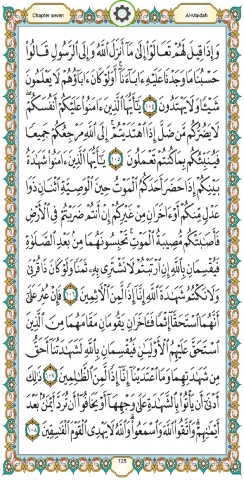 Chapter seven
Al-Maidah
وَإِذَا قِيلَ لَهُمْ تَعَالَوْا إِلَىٰ مَا أَنزَلَ اللَّهُ وَإِلَى الرَّسُولِ قَالُوا
حَسْبُنَا مَا وَجَدْنَا عَلَيْهِ ءَابَاءَنَا أَوَلَوْ كَانَ ءَابَاؤُهُمْ لَا يَعْلَمُونَ
شَيْئًا وَلَا يَهْتَدُونَ ١٠٤ يَا أَيُّهَا الَّذِينَ ءَامَنُوا عَلَيْكُمْ أَنفُسَكُمْ
لَا يَضُرُّكُم مَّن ضَلَّ إِذَا اهْتَدَيْتُمْ إِلَى اللَّهِ مَرْجِعُكُمْ جَمِيعًا
فَيُنَبِّئُكُم بِمَا كُنتُمْ تَعْمَلُونَ ١٠٥ يَا أَيُّهَا الَّذِينَ ءَامَنُوا شَهَادَةُ
بَيْنِكُمْ إِذَا حَضَرَ أَحَدَكُمُ الْمَوْتُ حِينَ الْوَصِيَّةِ اثْنَانِ ذَوَا
عَدْلٍ مِّنكُمْ أَوْ ءَاخَرَانِ مِنْ غَيْرِكُمْ إِنْ أَنتُمْ ضَرَبْتُمْ فِي الْأَرْضِ
فَأَصَابَتْكُم مُّصِيبَةُ الْمَوْتِ تَحْبِسُونَهُمَا مِن بَعْدِ الصَّلَاةِ
فَيُقْسِمَانِ بِاللَّهِ إِنِ ارْتَبْتُمْ لَا نَشْتَرِي بِهِ ثَمَنًا وَلَوْ كَانَ ذَا قُرْبَىٰ
وَلَا نَكْتُمُ شَهَادَةَ اللَّهِ إِنَّا إِذًا لَّمِنَ الْآثِمِينَ ١٠٦ فَإِنْ عُثِرَ عَلَىٰ
أَنَّهُمَا اسْتَحَقَّا إِثْمًا فَـَٔاخَرَانِ يَقُومَانِ مَقَامَهُمَا مِنَ الَّذِينَ
اسْتَحَقَّ عَلَيْهِمُ الْأَوْلَيَانِ فَيُقْسِمَانِ بِاللَّهِ لَشَهَادَتُنَا أَحَقُّ
مِن شَهَادَتِهِمَا وَمَا اعْتَدَيْنَا إِنَّا إِذًا لَّمِنَ الظَّالِمِينَ ١٠٧ ذَٰلِكَ
أَدْنَىٰ أَن يَأْتُوا بِالشَّهَادَةِ عَلَىٰ وَجْهِهَا أَوْ يَخَافُوا أَن تُرَدَّ أَيْمَانٌ بَعْدَ
أَيْمَانِهِمْ وَاتَّقُوا اللَّهَ وَاسْمَعُوا وَاللَّهُ لَا يَهْدِي الْقَوْمَ الْفَاسِقِينَ ١٠٨
125